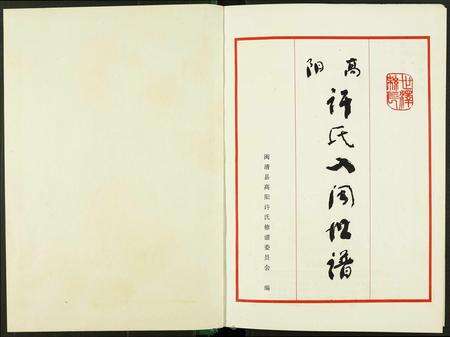 世澤綿長
高阳
许氏入闽世谱
闽清县高阳许氏修谱委员会 编